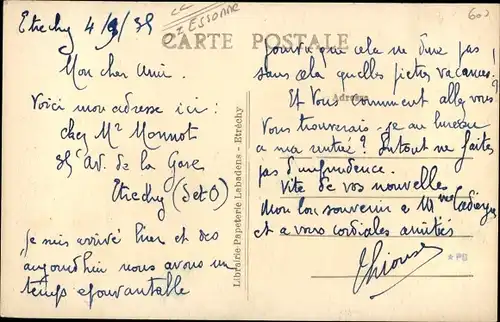 Etrechy 4/9/35
ESSONNE
600
CARTE POSTALE
Mon cher ami.
Voici mon adresse ici :
chez Mr Monnot
Av. de la Gare
Etrechy (S et O)
je suis arrivé hier et dès
aujourd'hui nous avons un
temps épouvantable
Librairie Papeterie Labadens - Etréchy
Adresse
pourvu que cela ne dure pas !
sans cela quelles pietres vacances.
Et Vous comment allez vous ?
Vous trouverais-je au bureau
a ma rentrée ? Surtout ne faites
pas d'imprudence.
Vite de vos nouvelles
Mon bon souvenir a Mme
et a vous cordiales amitiés
*PB